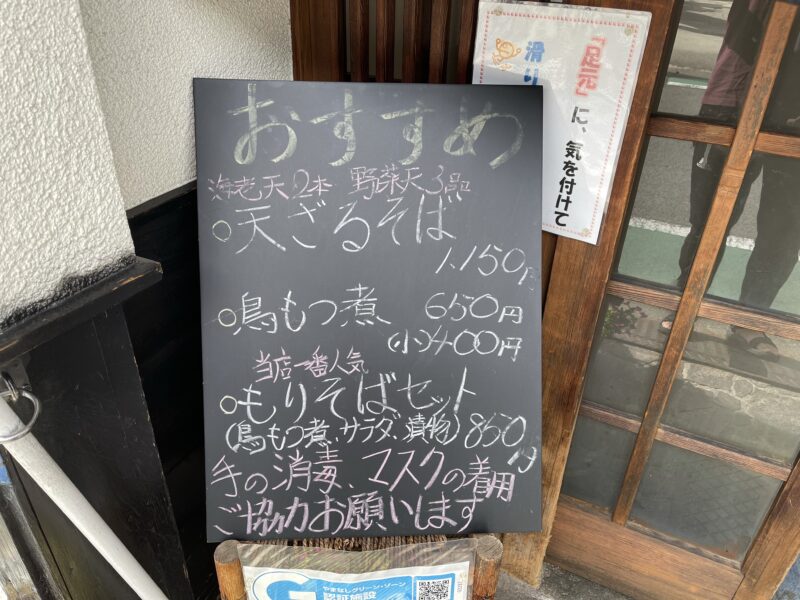 おすすめ
海老天2本 野菜天3品
○天ざるそば
1,150円
○鳥もつ煮 650円
(小)400円
当店一番人気
○もりそばセット
(鳥もつ煮、サラダ、漬物)850円
手の消毒、マスクの着用
ご協力お願いします
「足元」に、気を付けて
滑り
やまなしグリーン・ゾーン
認証施設